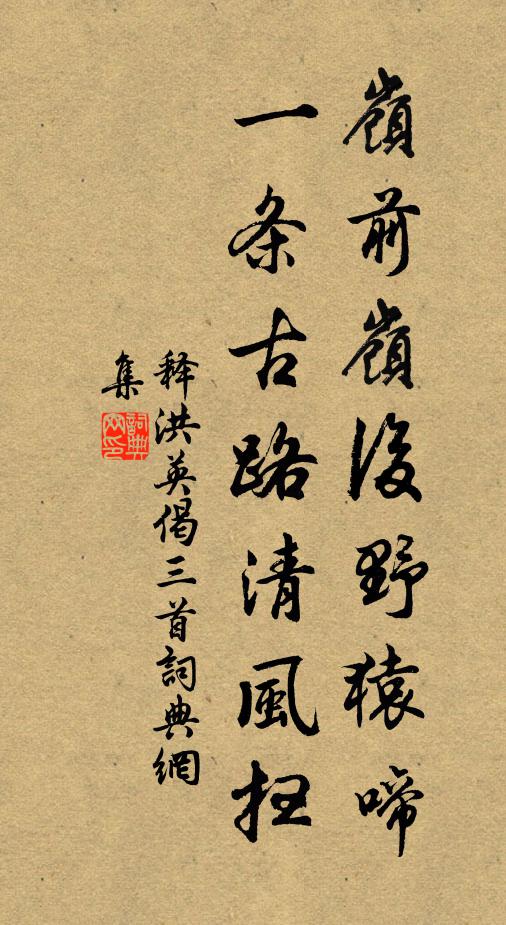 嶺前嶺後野猿啼
一条古路清風扫
释洪英偈三首詞典網
集
詞典網印